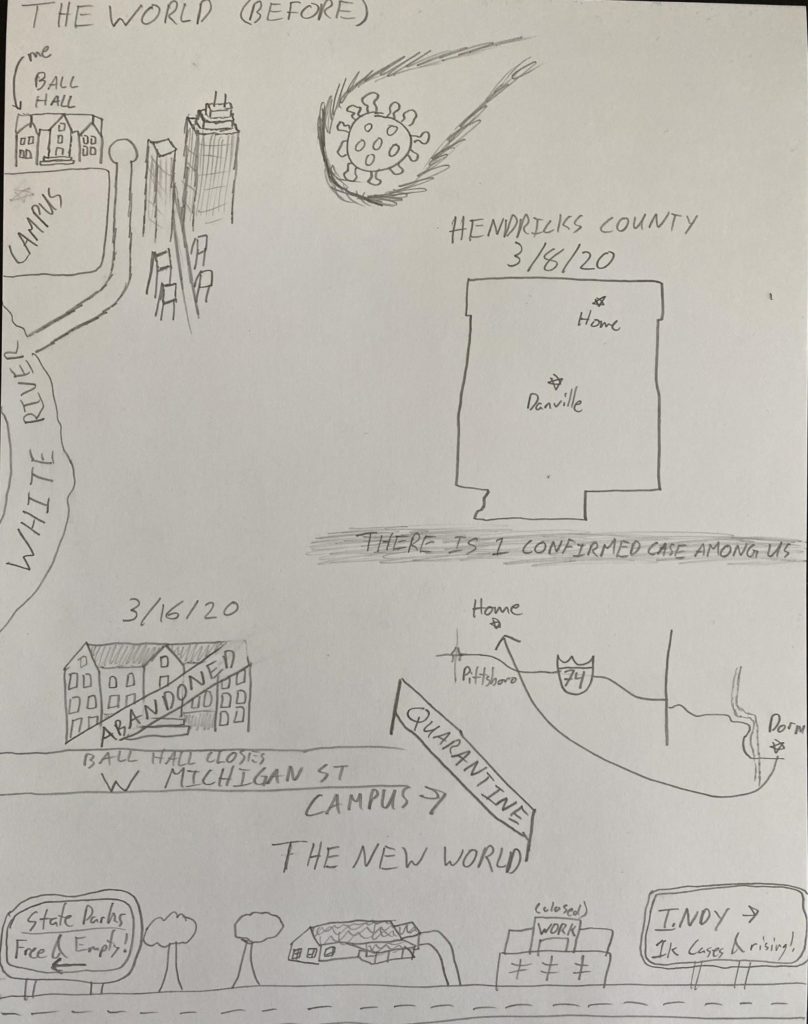 THE WORLD (BEFORE)
me
BALL
HALL
CAMPUS
HENDRICKS COUNTY
3/8/20
Home
Danville
WHITE RIVER
THERE IS 1 CONFIRMED CASE AMONG US
3/16/20
ABANDONED
BALL HALL CLOSES
W MICHIGAN ST
Home
Pittsboro
74
Dorm
QUARANTINE
CAMPUS →
THE NEW WORLD
State Parks
Free & Empty!
←
(closed)
WORK
INDY →
1k Cases & rising!